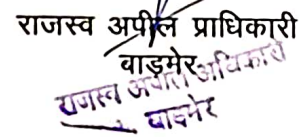 राजस्व अपील प्राधिकारी
बाड़मेर
राजस्व अपील अधिकारी
बाड़मेर